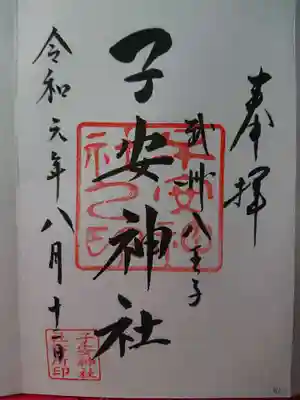 奉拝
武州八王子
子安神社
令和元年八月十二日
子安神社之印
子安神社